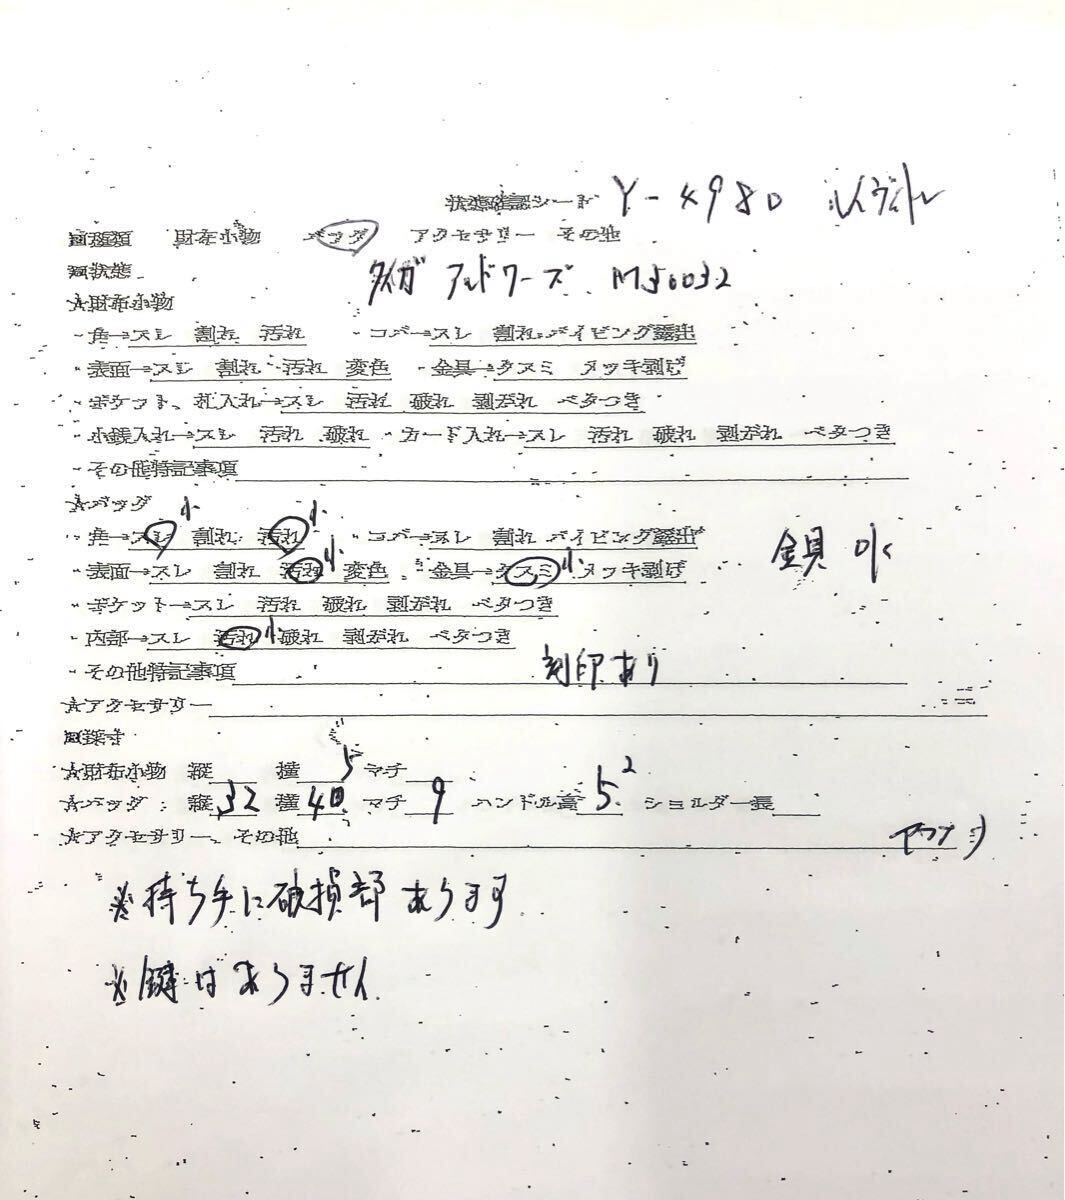 状態確認シート Y-4980 ルイヴィトン
■種類 財布小物 バッグ アクセサリー その他
■状態 タイガ アンドワーズ M30032
★財布小物
・角→スレ 割れ 汚れ ・コバ→スレ 割れ パイピング露出
・表面→スレ 割れ 汚れ 変色 ・金具→クスミ メッキ剥げ
・ポケット、札入れ→スレ 汚れ 破れ 剥がれ ベタつき
・小銭入れ→スレ 汚れ 破れ ・カード入れ→スレ 汚れ 破れ 剥がれ ベタつき
・その他特記事項
★バッグ
・角→スレ 小 割れ 汚れ 小 ・コバ→スレ 割れ パイピング露出
・表面→スレ 割れ 汚れ 小 変色 ・金具→クスミ 小 メッキ剥げ 金具 OK
・ポケット→スレ 汚れ 破れ 剥がれ ベタつき
・内部→スレ 汚れ 小 破れ 剥がれ ベタつき
・その他特記事項 刻印あり
★アクセサリー
■採寸
★財布小物 縦 横 マチ
★バッグ 縦 32 横 40 マチ 9 ハンドル高 5.2 ショルダー長
★アクセサリー、その他
※持ち手に破損部あります
※鍵はありません